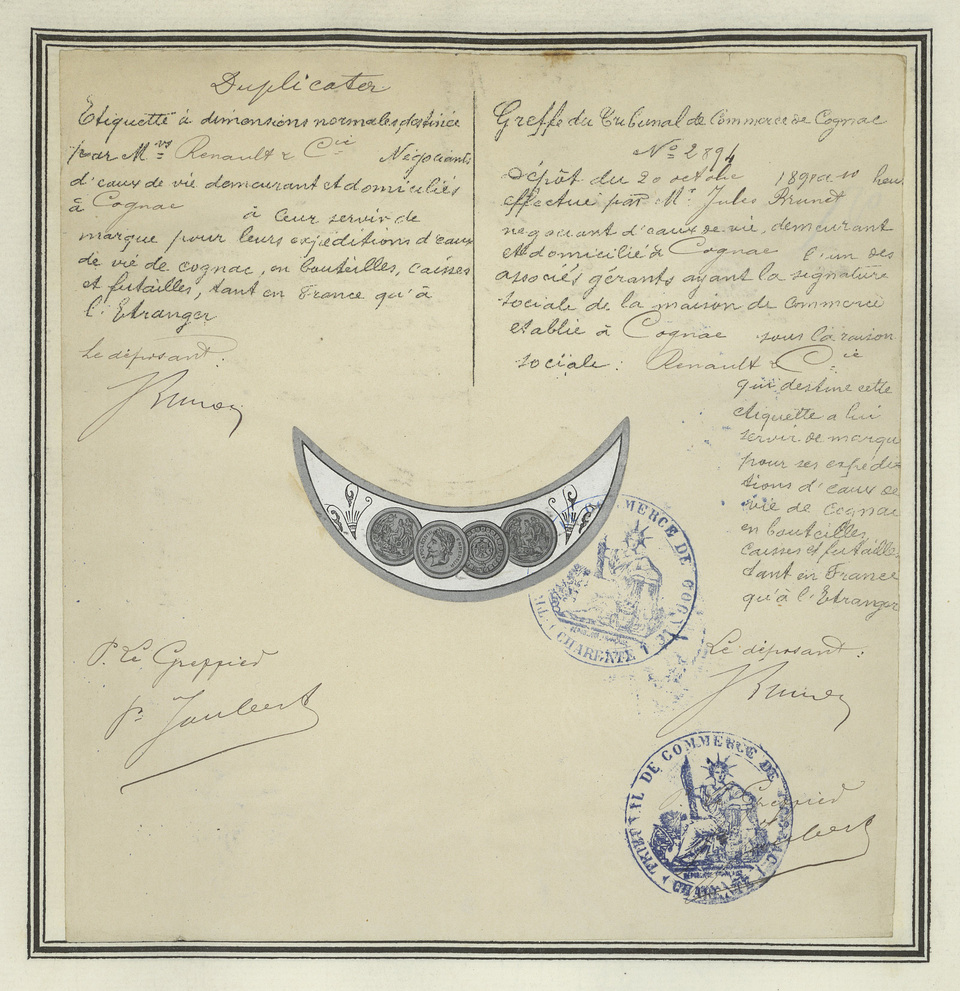 Duplicater
Etiquette à dimensions normales, destinée
par Mrs Renault & Cie Négociants
d'eaux de vie demeurant et domiciliés
à Cognac à leur servir de
marque pour leurs expéditions d'eaux
de vie de cognac, en bouteilles, caisses
et futailles, tant en France qu'à
l'Etranger
Le déposant:
P. Le Greffier
Greffe du Tribunal de Commerce de Cognac
No 2894
dépôt du 20 octobre heu
effectué par Mr Jules
négociant d'eaux de vie, demeurant
et domicilié à Cognac l'un des
associés gérants ayant la signature
sociale de la maison de Commerce
etablie à Cognac sous la raison
sociale: Renault & Cie
qui destine cette
étiquette a lui
servir de marque
pour ses expédi
tions d'eaux de
vie de Cognac
en bouteilles
caisses et futailles
tant en France
qu'à l'Etranger
Le déposant:
CHARENTE
TRIBUNAL DE COMMERCE DE